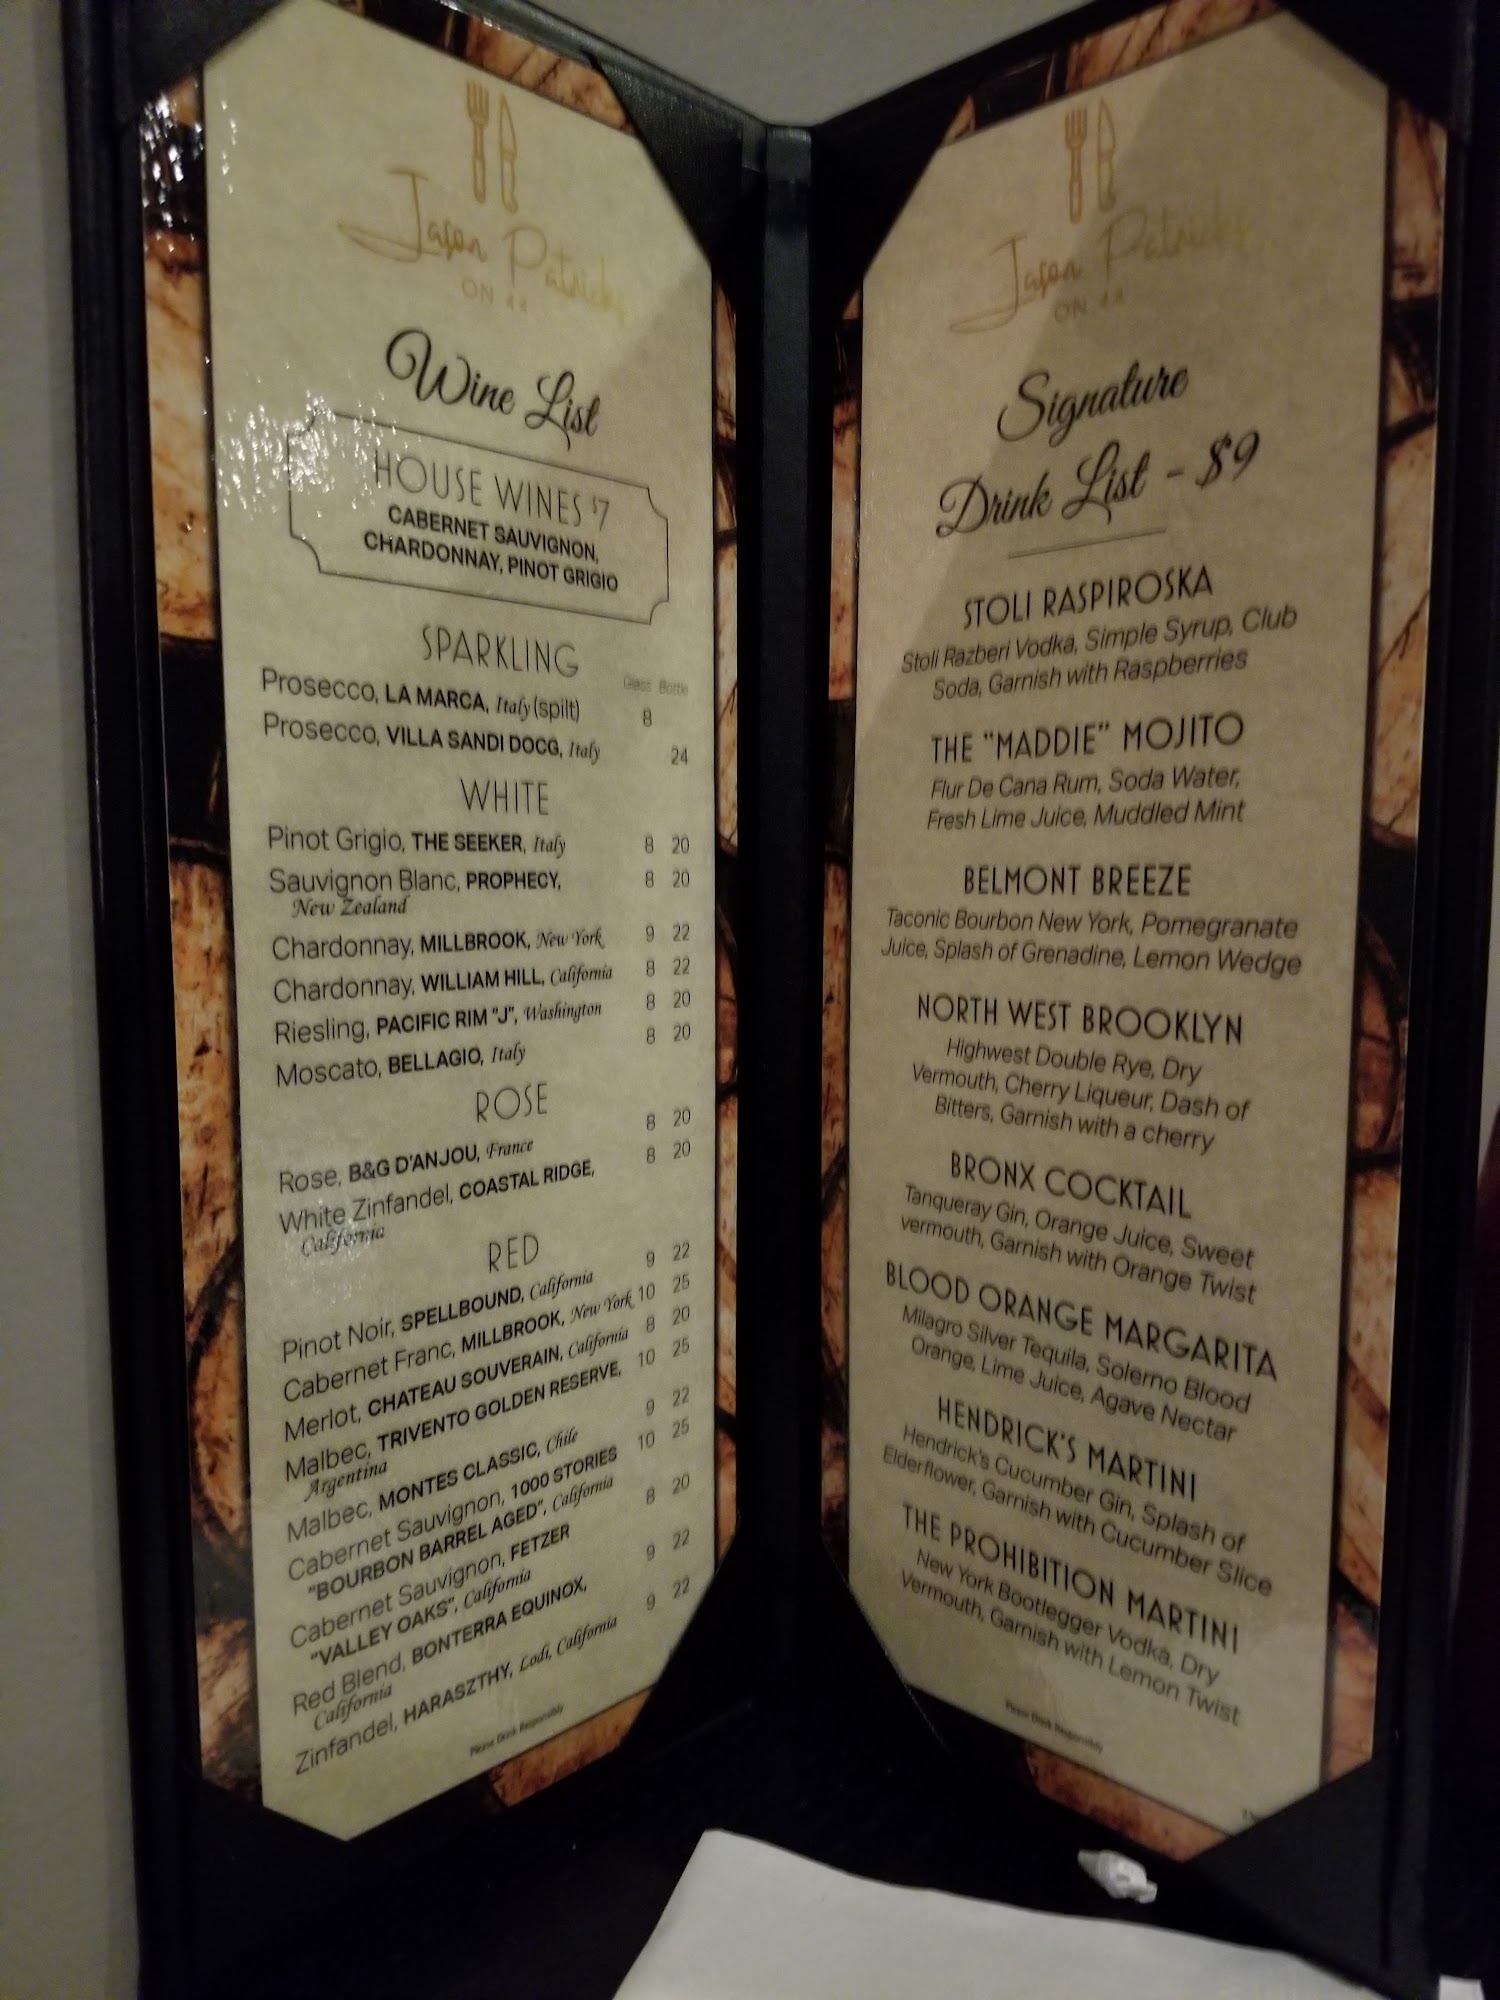 Jason Patricks
ON 44
Wine List
HOUSE WINES $7
CABERNET SAUVIGNON,
CHARDONNAY, PINOT GRIGIO
SPARKLING
Glass Bottle
Prosecco, LA MARCA, Italy (spilt) 8
Prosecco, VILLA SANDI DOCG, Italy 24
WHITE
Pinot Grigio, THE SEEKER, Italy 8 20
Sauvignon Blanc, PROPHECY, 8 20
New Zealand
Chardonnay, MILLBROOK, New York 9 22
Chardonnay, WILLIAM HILL, California 8 22
Riesling, PACIFIC RIM "J", Washington 8 20
Moscato, BELLAGIO, Italy 8 20
ROSE
Rose, B&G D'ANJOU, France 8 20
White Zinfandel, COASTAL RIDGE, 8 20
California
RED
Pinot Noir, SPELLBOUND, California 9 22
Cabernet Franc, MILLBROOK, New York 10 25
Merlot, CHATEAU SOUVERAIN, California 8 20
Malbec, TRIVENTO GOLDEN RESERVE, 10 25
Argentina
Malbec, MONTES CLASSIC, Chile 9 22
Cabernet Sauvignon, 1000 STORIES 10 25
"BOURBON BARREL AGED", California
Cabernet Sauvignon, FETZER 8 20
"VALLEY OAKS", California
Red Blend, BONTERRA EQUINOX, 9 22
California
Zinfandel, HARASZTHY, Lodi, California 9 22
Please Drink Responsibly
Jason Patricks
ON 44
Signature
Drink List - $9
STOLI RASPIROSKA
Stoli Razberi Vodka, Simple Syrup, Club
Soda, Garnish with Raspberries
THE "MADDIE" MOJITO
Flur De Cana Rum, Soda Water,
Fresh Lime Juice, Muddled Mint
BELMONT BREEZE
Taconic Bourbon New York, Pomegranate
Juice, Splash of Grenadine, Lemon Wedge
NORTH WEST BROOKLYN
Highwest Double Rye, Dry
Vermouth, Cherry Liqueur, Dash of
Bitters, Garnish with a cherry
BRONX COCKTAIL
Tanqueray Gin, Orange Juice, Sweet
vermouth, Garnish with Orange Twist
BLOOD ORANGE MARGARITA
Milagro Silver Tequila, Solerno Blood
Orange, Lime Juice, Agave Nectar
HENDRICK'S MARTINI
Hendrick's Cucumber Gin, Splash of
Elderflower, Garnish with Cucumber Slice
THE PROHIBITION MARTINI
New York Bootlegger Vodka, Dry
Vermouth, Garnish with Lemon Twist
Please Drink Responsibly